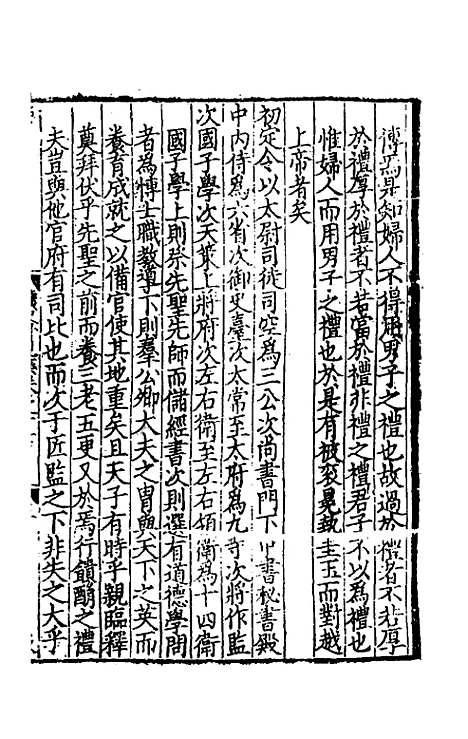 傳焉是知婦人不得用男子之禮也故過於禮者不若厚
於禮厚於禮者不若當於禮非禮之禮君子不以為禮也
惟婦人而用男子之禮也於是有被衮冕執圭玉而對越
上帝者矣
初定令以太尉司徒司空為三公次尚書門下中書秘書殿
中內侍為六省次御史臺次太常至太府為九寺次將作監
次國子學次天策上將府次左右衛至左右領衛為十四衛
國子學上則祭先聖先師而儲經書次則選有道德學問
者為博士職教導下則羣公卿大夫之胄與天下之英而
養育成就之以備官使其地重矣且天子有時乎親臨釋
奠拜伏乎先聖之前而養三老五更又於焉行饋酳之禮
夫豈與他官府有司比也而次于匠監之下非失之大乎